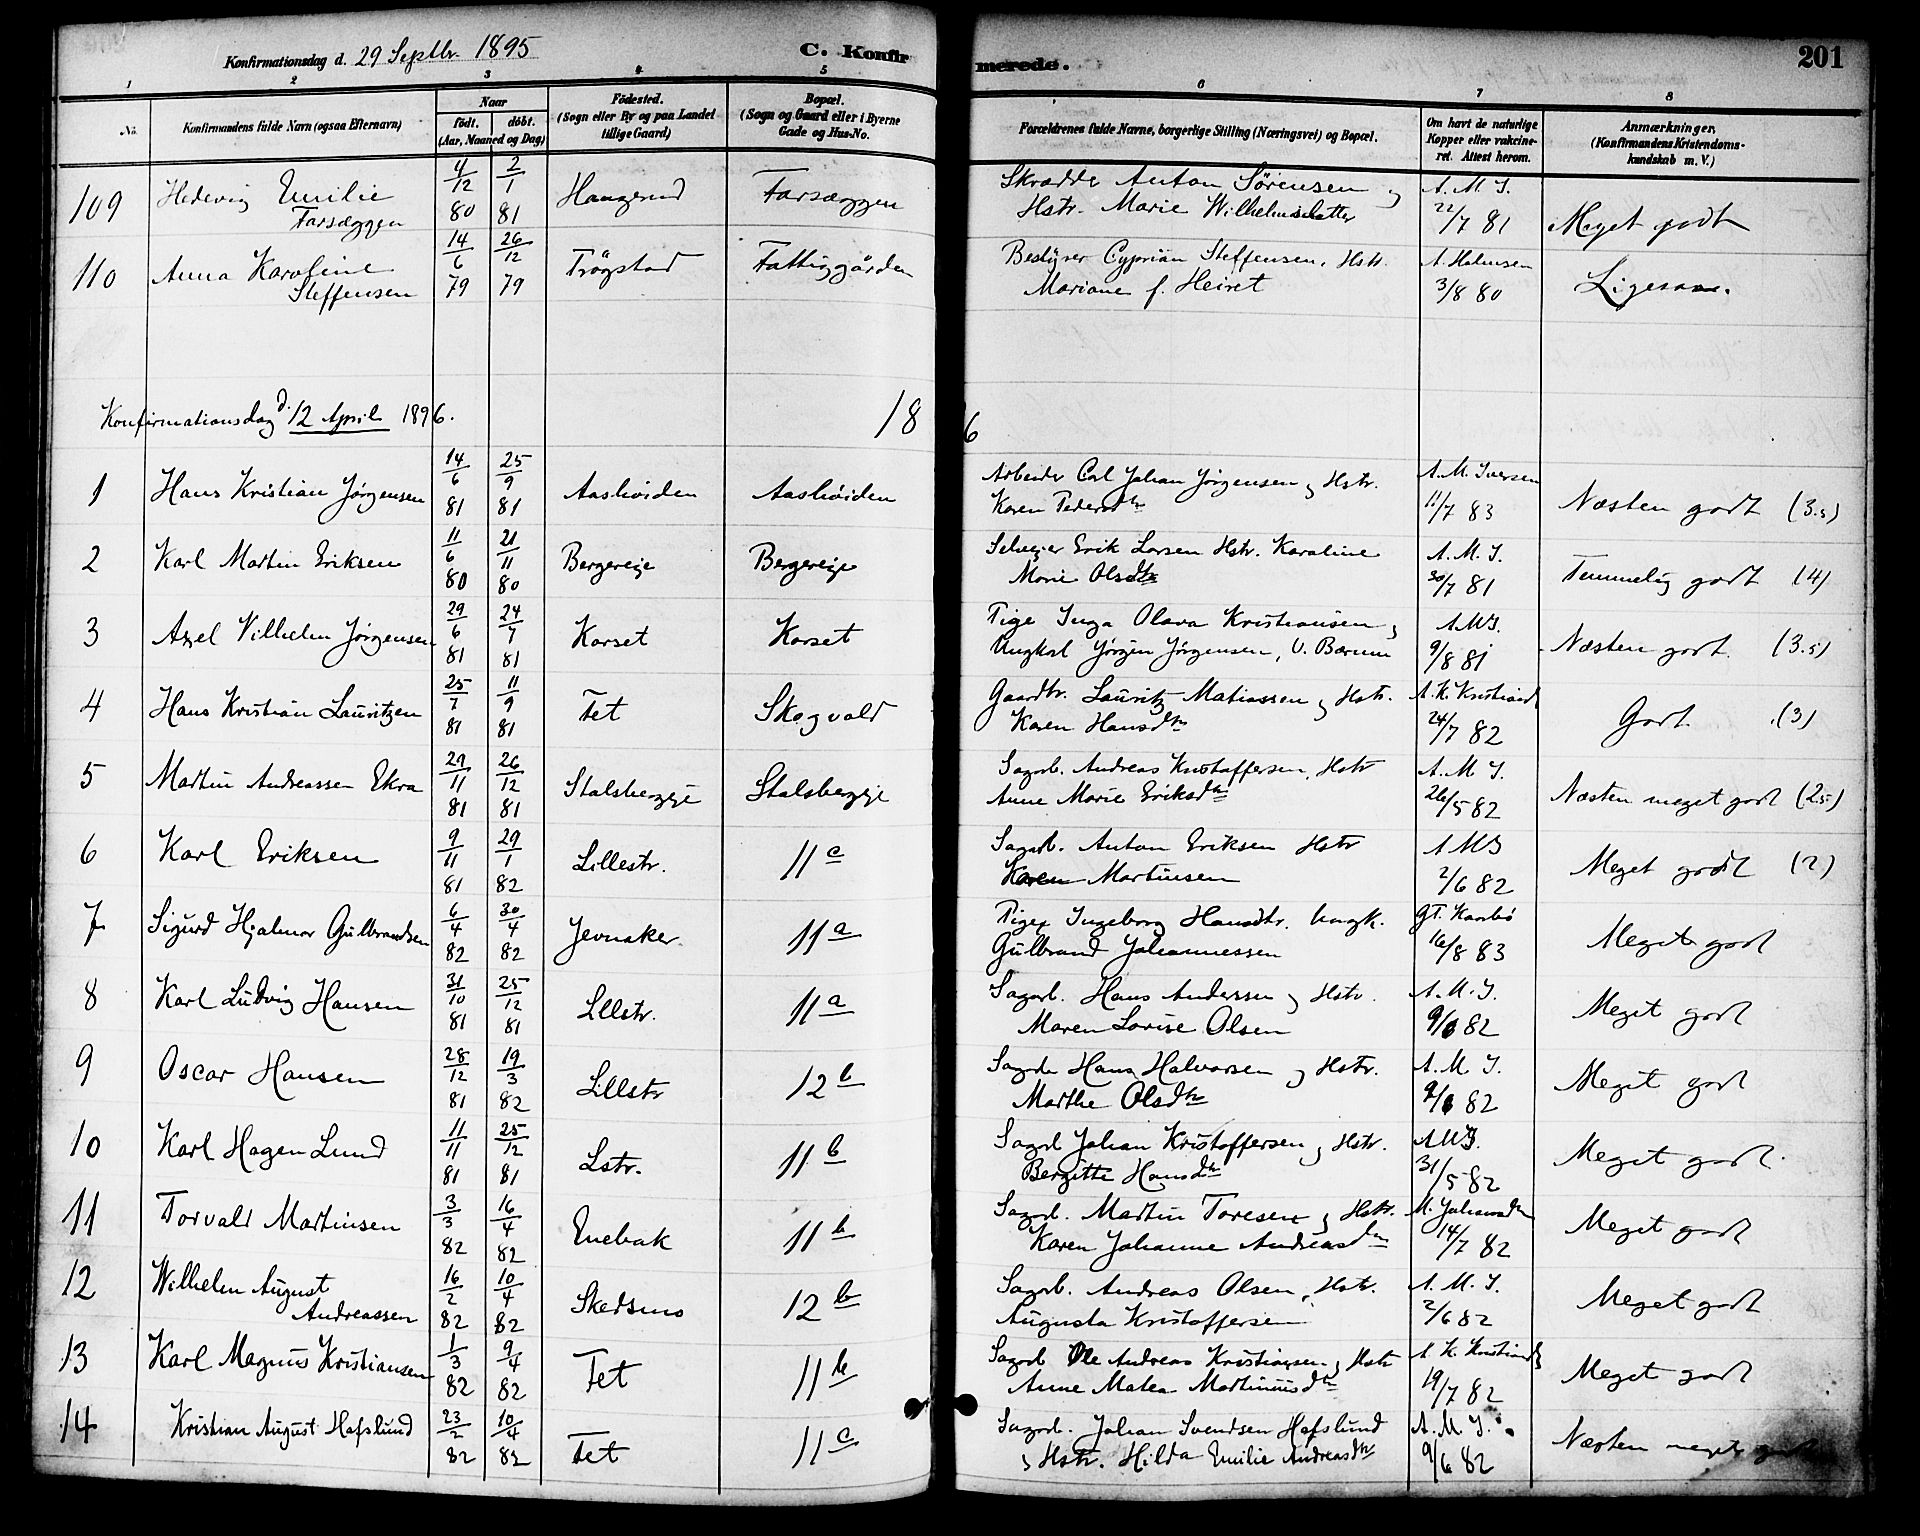 Konfirmationsdag d. 29 Septbr. 1895
C. Konfirmerede.
201
1 2 3 4 5 6 7 8
No.
Konfirmandens fulde Navn (ogsaa Efternavn)
Naar
født. døbt.
(Aar, Maaned og Dag)
Fødested.
(Sogn eller By og paa Landet
tillige Gaard)
Bopæl.
(Sogn og Gaard eller i Byerne
Gade og Hus-No.
Forældrenes fulde Navne, borgerlige Stilling (Næringsvei) og Bopæl.
Om havt de naturlige
Kopper eller vakcine-
ret. Attest herom.
Anmærkninger.
(Konfirmandens Kristendoms-
kundskab m. V.)
109 Hedevig Emilie Farsæggen 4/12 80 2/1 81 Haugerud Farsæggen Skrædder Anton Sørensen og Hstr. Marie Wilhelmsdatter A. M. I. 22/7 81 Meget godt
110 Anna Karoline Steffensen 14/6 79 26/12 79 Trøgstad Fattiggården Bestyrer Cyprian Steffensen, Hstr. Mariane f. Heiret A. Halmsen 3/8 80 Ligesaa.
Konfirmationsdag d. 12 April 1896.
18 6
1 Hans Kristian Jørgensen 14/6 81 25/9 81 Aashøiden Aashøiden Arbeider Carl Johan Jørgensen og Hstr. Karen Pedersdtr A. M. Iversen 11/7 83 Næsten godt (3.5)
2 Karl Martin Eriksen 11/6 80 21/11 80 Bergereie Bergereie Selveier Erik Larsen Hstr. Karoline Marie Olsdtr A. M. I. 30/7 81 Temmelig godt (4)
3 Axel Vilhelm Jørgensen 29/6 81 24/7 81 Korset Korset Pige Inga Olava Kristiansen og Ungkarl Jørgen Jørgensen, V. Bærum A. M. I. 9/8 81 Næsten godt. (3.5)
4 Hans Kristian Lauritzen 25/7 81 11/9 81 Fet Skogvold Gaardbr. Lauritz Matiassen og Hstr. Karen Hansdtr A. K. Kristians 24/7 82 Godt. (3)
5 Martin Andreassen Ekra 29/11 81 26/12 81 Stalsbergeje Stalsbergeje Sagarb. Andreas Kristoffersen, Hstr Anne Marie Eriksdtr A. M. I. 26/5 82 Næsten meget godt (2.5)
6 Karl Eriksen 9/11 81 29/1 82 Lillestr. 11 c Sagarb. Anton Eriksen Hstr Karen Martinsen A M I 2/6 82 Meget godt (2)
7 Sigurd Hjalmar Gulbrandsen 6/4 82 30/4 82 Jevnaker 11 a Pige Ingeborg Hansdtr. Ungk. Gulbrand Johannessen 16/8 83 Meget godt
8 Karl Ludvig Hansen 31/10 81 25/12 81 Lllstr. 11 a Sagarb. Hans Anderssen og Hstr. Maren Lovise Olsen A. M. I. 9/6 82 Meget godt
9 Oscar Hansen 28/12 81 19/3 82 Lillstr 12 b Sagarb Hans Halvorsen og Hstr. Marthe Olsdtr A. M. I. 9/6 82 Meget godt
10 Karl Hagen Lund 11/11 81 25/12 81 Lstr. 11 b Sagarb Johan Kristoffersen og Hstr. Bergitte Hansdtr A M I. 31/5 82 Meget godt.
11 Torvald Martinsen 3/3 82 16/4 82 Enebak 11 b Sagarb. Martin Toresen og Hstr. Karen Johanne Andreasdtr 14/7 82 Meget godt
12 Wilhelm August Andreassen 16/2 82 10/4 82 Skedsmo 12 b Sagarb. Andreas Olsen, Hstr. Augusta Kristoffersen A. M. I. 2/6 82 Meget godt
13 Karl Magnus Kristiansen 1/3 82 9/4 82 Fet 11 b Sagarb Ole Andreas Kristiansen og Hstr Anne Matea Martinusdtr A. K. Kristians 19/7 82 Meget godt
14 Kristian August Hafslund 23/2 82 10/4 82 Fet 11 c Sagarb. Johan Svendsen Hafslund og Hstr. Hilda Emilie Andreasdtr A. M. I. 9/6 82 Næsten meget godt